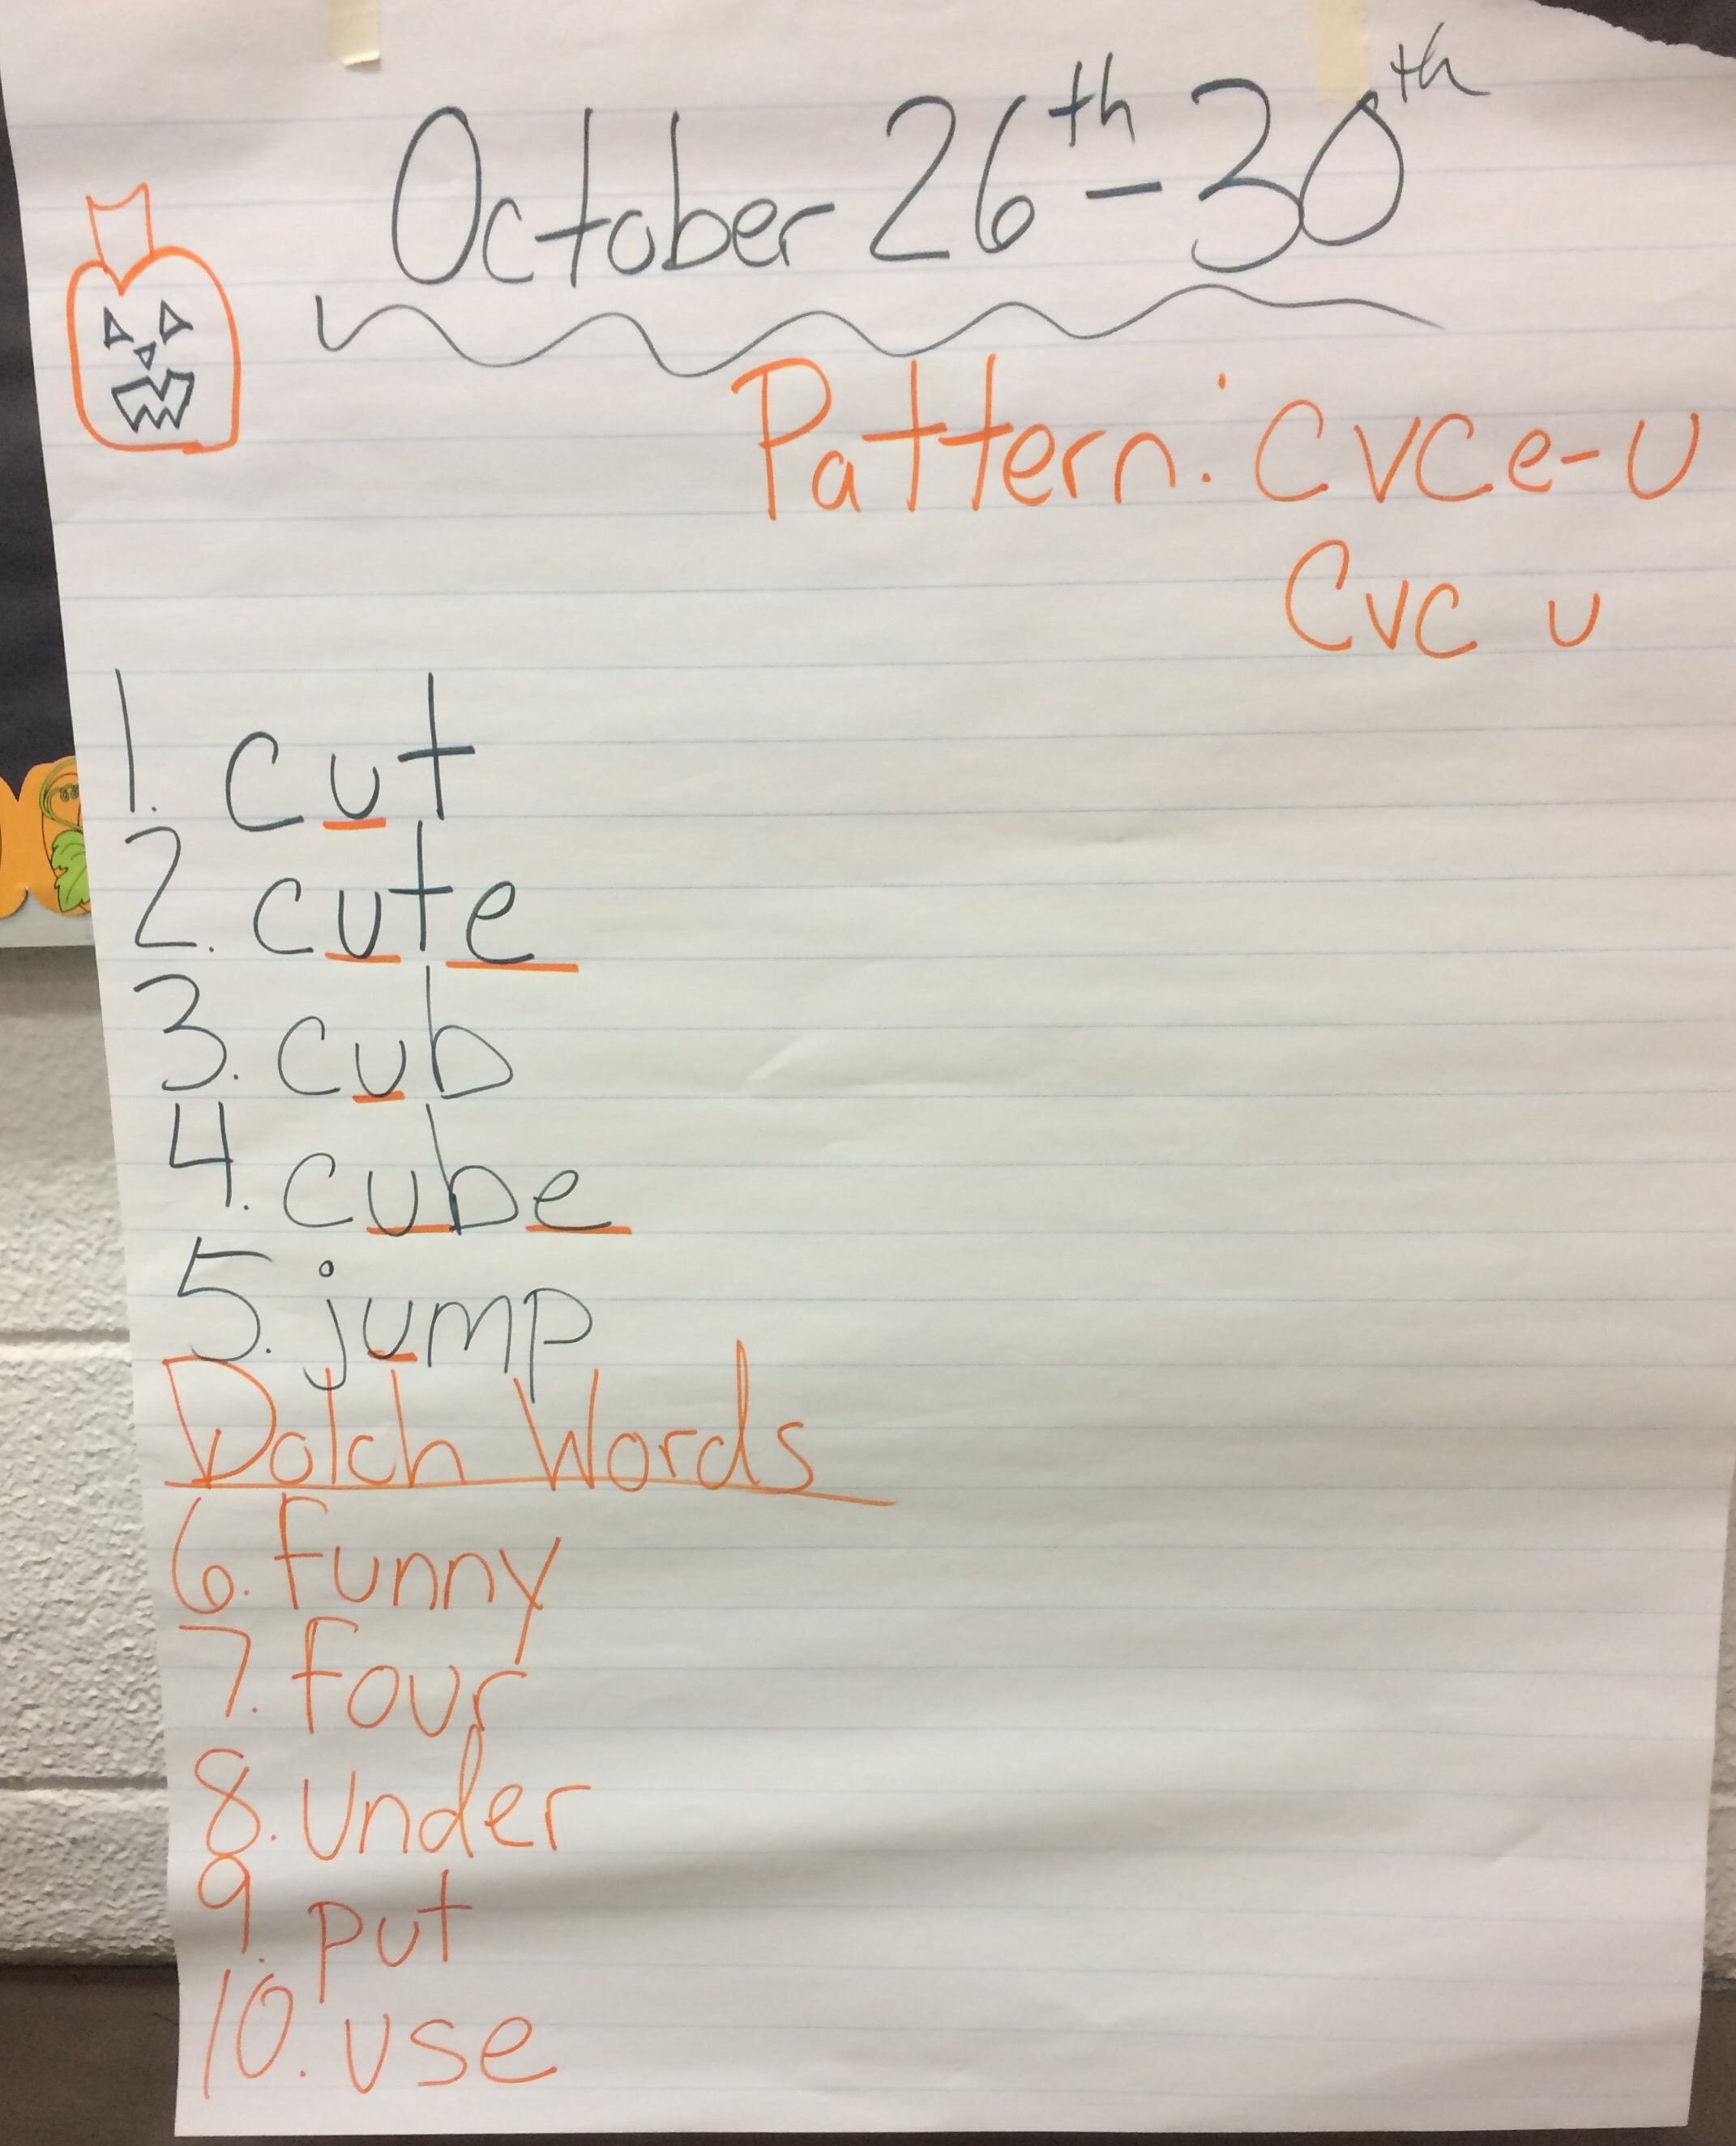 October 26th - 30th
Pattern: CVCe - U
CVC u
1. cut
2. cute
3. cub
4. cube
5. jump
Dolch Words
6. funny
7. four
8. under
9. put
10. use